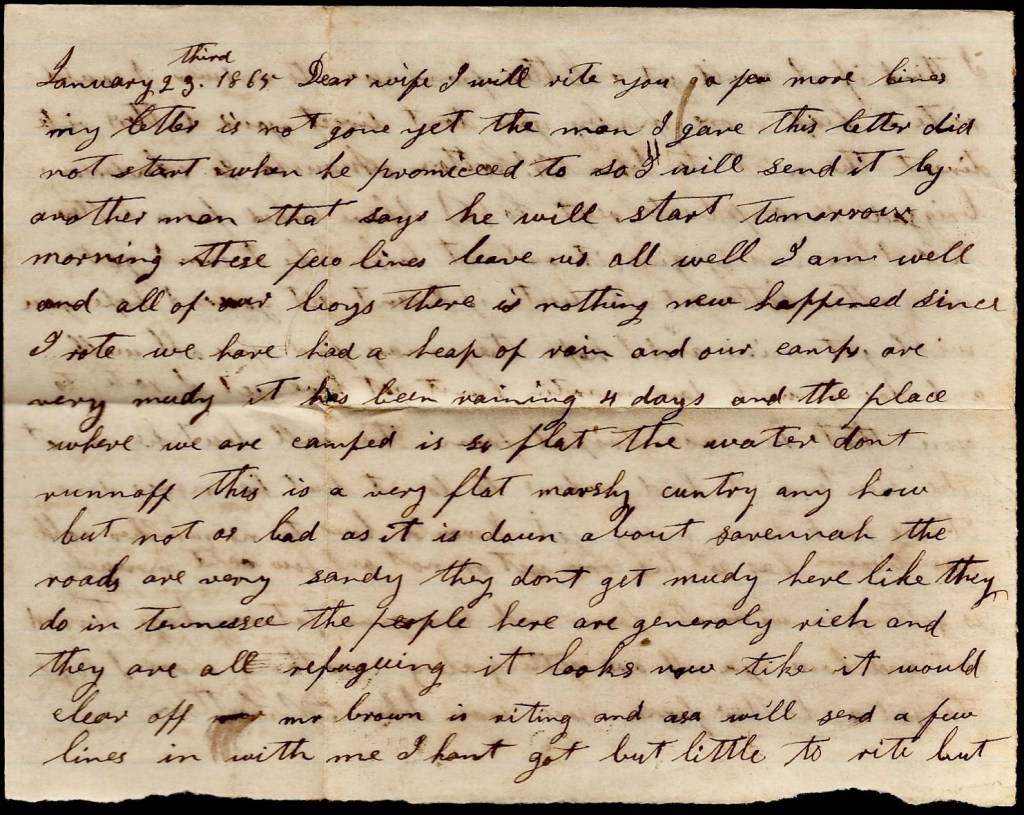 January 23. third 1865 Dear wife I will rite you a few more lines
my letter is not gone yet the man I gave this letter did
not start when he promiced to so I will send it by
another man that says he will start tomorrow
morning these few lines leave us all well I am well
and all of our boys there is nothing new happened since
I rote we have had a heap of rain and our camps are
very mudy it has been raining 4 days and the place
where we are camped is so flat the water dont
runnoff this is a very flat marshy cuntry any how
but not as bad as it is down about savennah the
roads are very sandy they dont get mudy here like they
do in tennessee the people here are generaly rich and
they are all refugueing it looks now like it would
clear off mr brown is riting and asa will send a few
lines in with me I hant got but little to rite but